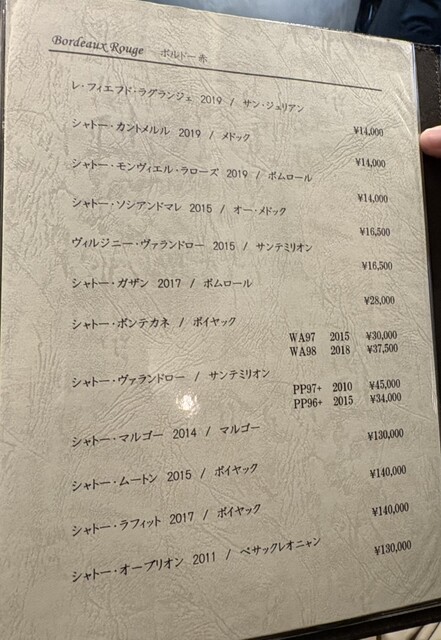 Bordeaux Rouge ボルドー赤
レ・フィエフド・ラグランジェ 2019 / サン・ジュリアン
¥14,000
シャトー・カントメルル 2019 / メドック
¥14,000
シャトー・モンヴィエル・ラローズ 2019 / ポムロール
¥14,000
シャトー・ソシアンドマレ 2015 / オー・メドック
¥16,500
ヴィルジニー・ヴァランドロー 2015 / サンテミリオン
¥16,500
シャトー・ガザン 2017 / ポムロール
¥28,000
シャトー・ポンテカネ / ポイヤック
WA97 2015 ¥30,000
WA98 2018 ¥37,500
シャトー・ヴァランドロー / サンテミリオン
PP97+ 2010 ¥45,000
PP96+ 2015 ¥34,000
シャトー・マルゴー 2014 / マルゴー
¥130,000
シャトー・ムートン 2015 / ポイヤック
¥140,000
シャトー・ラフィット 2017 / ポイヤック
¥140,000
シャトー・オーブリオン 2011 / ペサックレオニャン
¥130,000